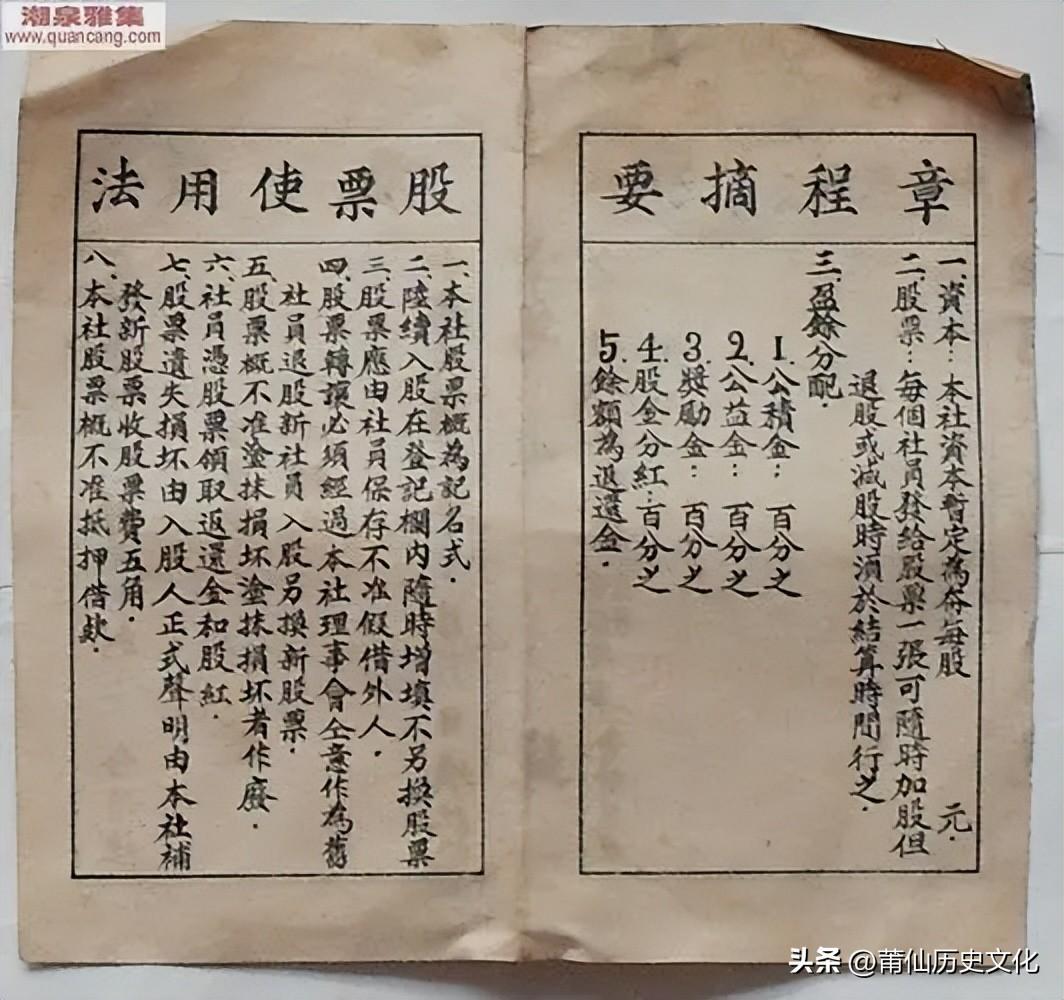 潮泉雅集
www.quancang.com
章程摘要
一、資本:本社資本暫定為每股 元.
二、股票:每個社員發給股票一張可隨時加股但
退股或減股時須於結算時間行之.
三、盈餘分配.
1.公積金: 百分之
2.公益金: 百分之
3.獎勵金: 百分之
4.股金分紅:百分之
5.餘額為退還金.
股票使用法
一、本社股票概為記名式.
二、陸續入股在登記欄內隨時增填不另換股票
三、股票應由社員保存不准假借外人.
四、股票轉讓必須經過本社理事會仝意作為舊
社員退股新社員入股另換新股票.
五、股票概不准塗抹損坏塗抹損坏者作廢.
六、社員憑股票領取返還金和股紅.
七、股票遺失損坏由入股人正式聲明由本社補
發新股票收股票費五角.
八、本社股票概不准抵押借款.
头条 @莆仙历史文化